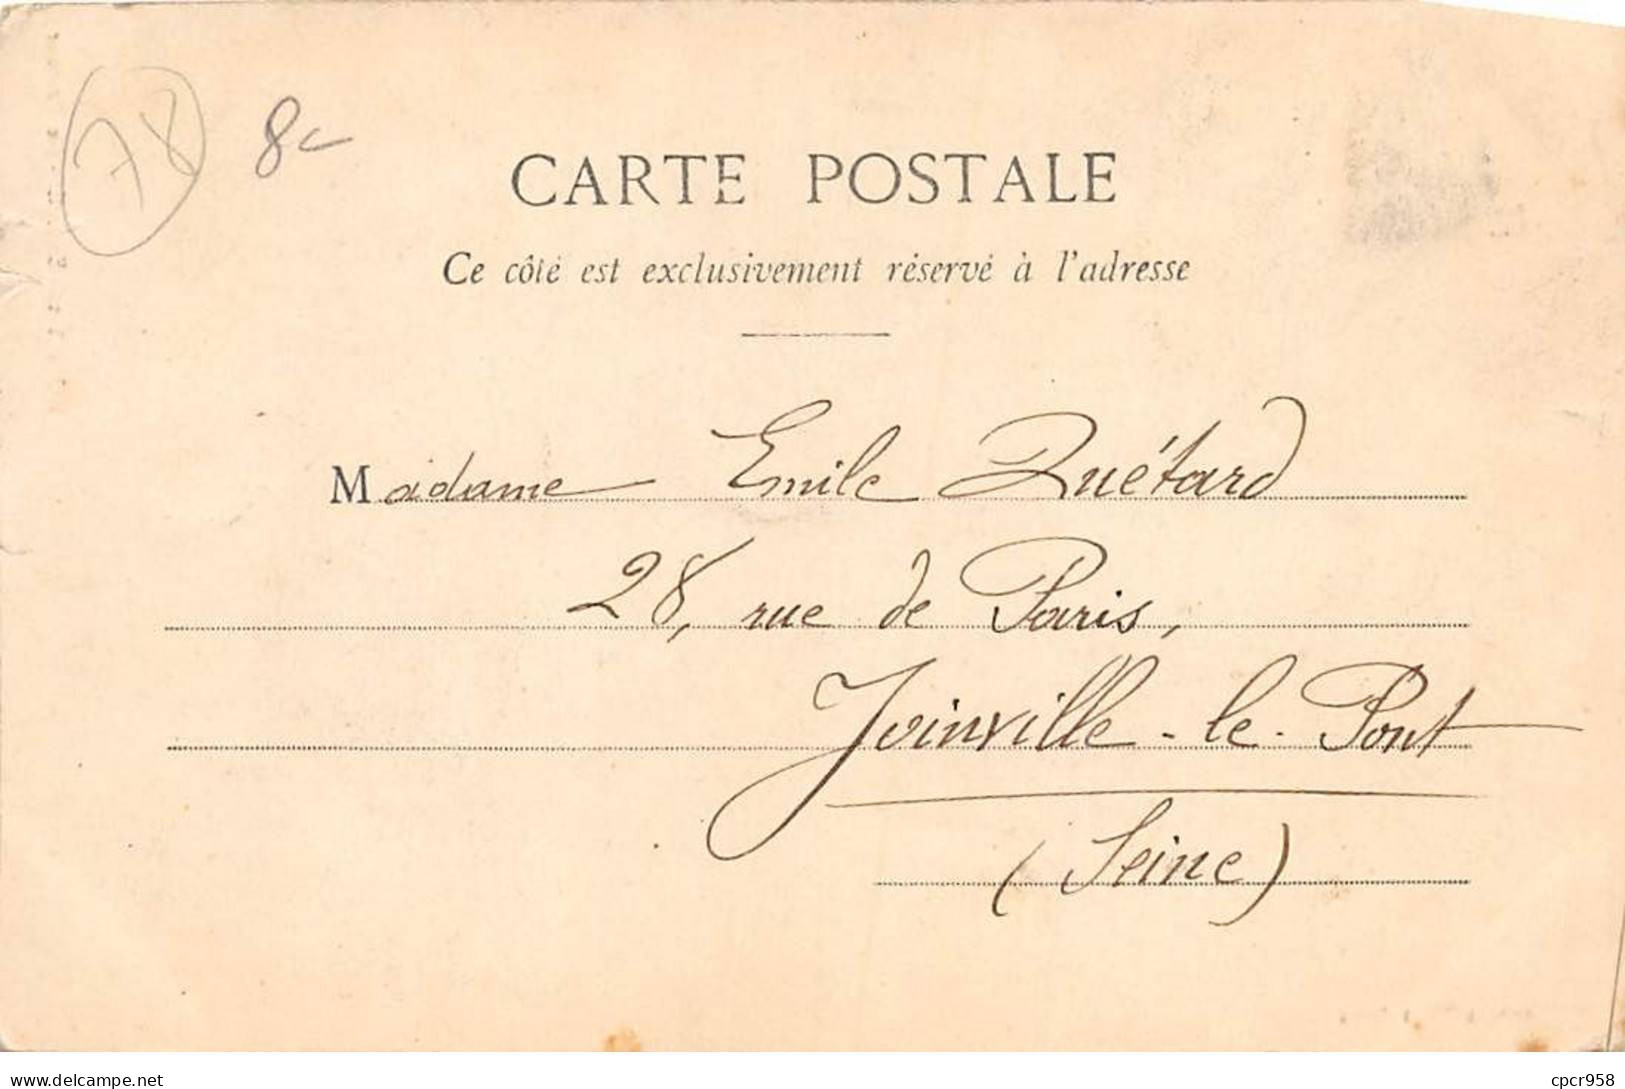 78 8
CARTE POSTALE
Ce côté est exclusivement réservé à l'adresse
Madame Emile Quétard
28, rue de Paris,
Joinville-le-Pont
(Seine)
delcampe.net
cpcr958